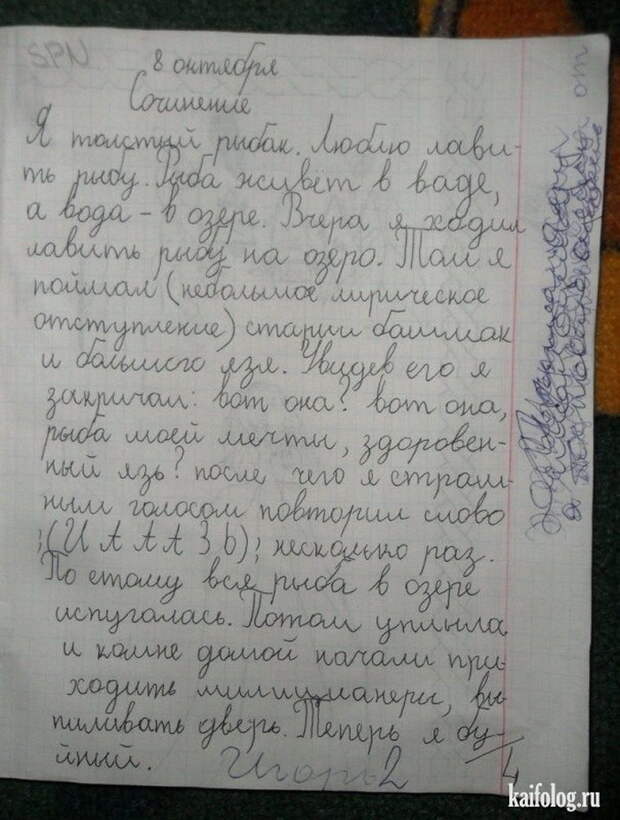 SPN
8 октября
Сочинение
Я толстый рыбак. Люблю лави-
ть рыбу. Рыба живет в ваде,
а вода - в озере. Вчера я ходил
лавить рыбу на озеро. Там я
поймал (небольшое лирическое
отступление) старый башмак
и большого язя. Увидев его я
закричал: вот она? вот она,
рыба моей мечты, здоровен-
ный язь? после чего я страш-
ным голосом повторил слово
;(ИАААЗЬ); несколько раз.
По етому вся рыба в озере
испугалась. Потом уплыла
и комне домой начали при-
ходить милицианеры, вы-
пиливать дверь. Теперь я бу-
йный.
Игорь 2
4
от
kaifolog.ru